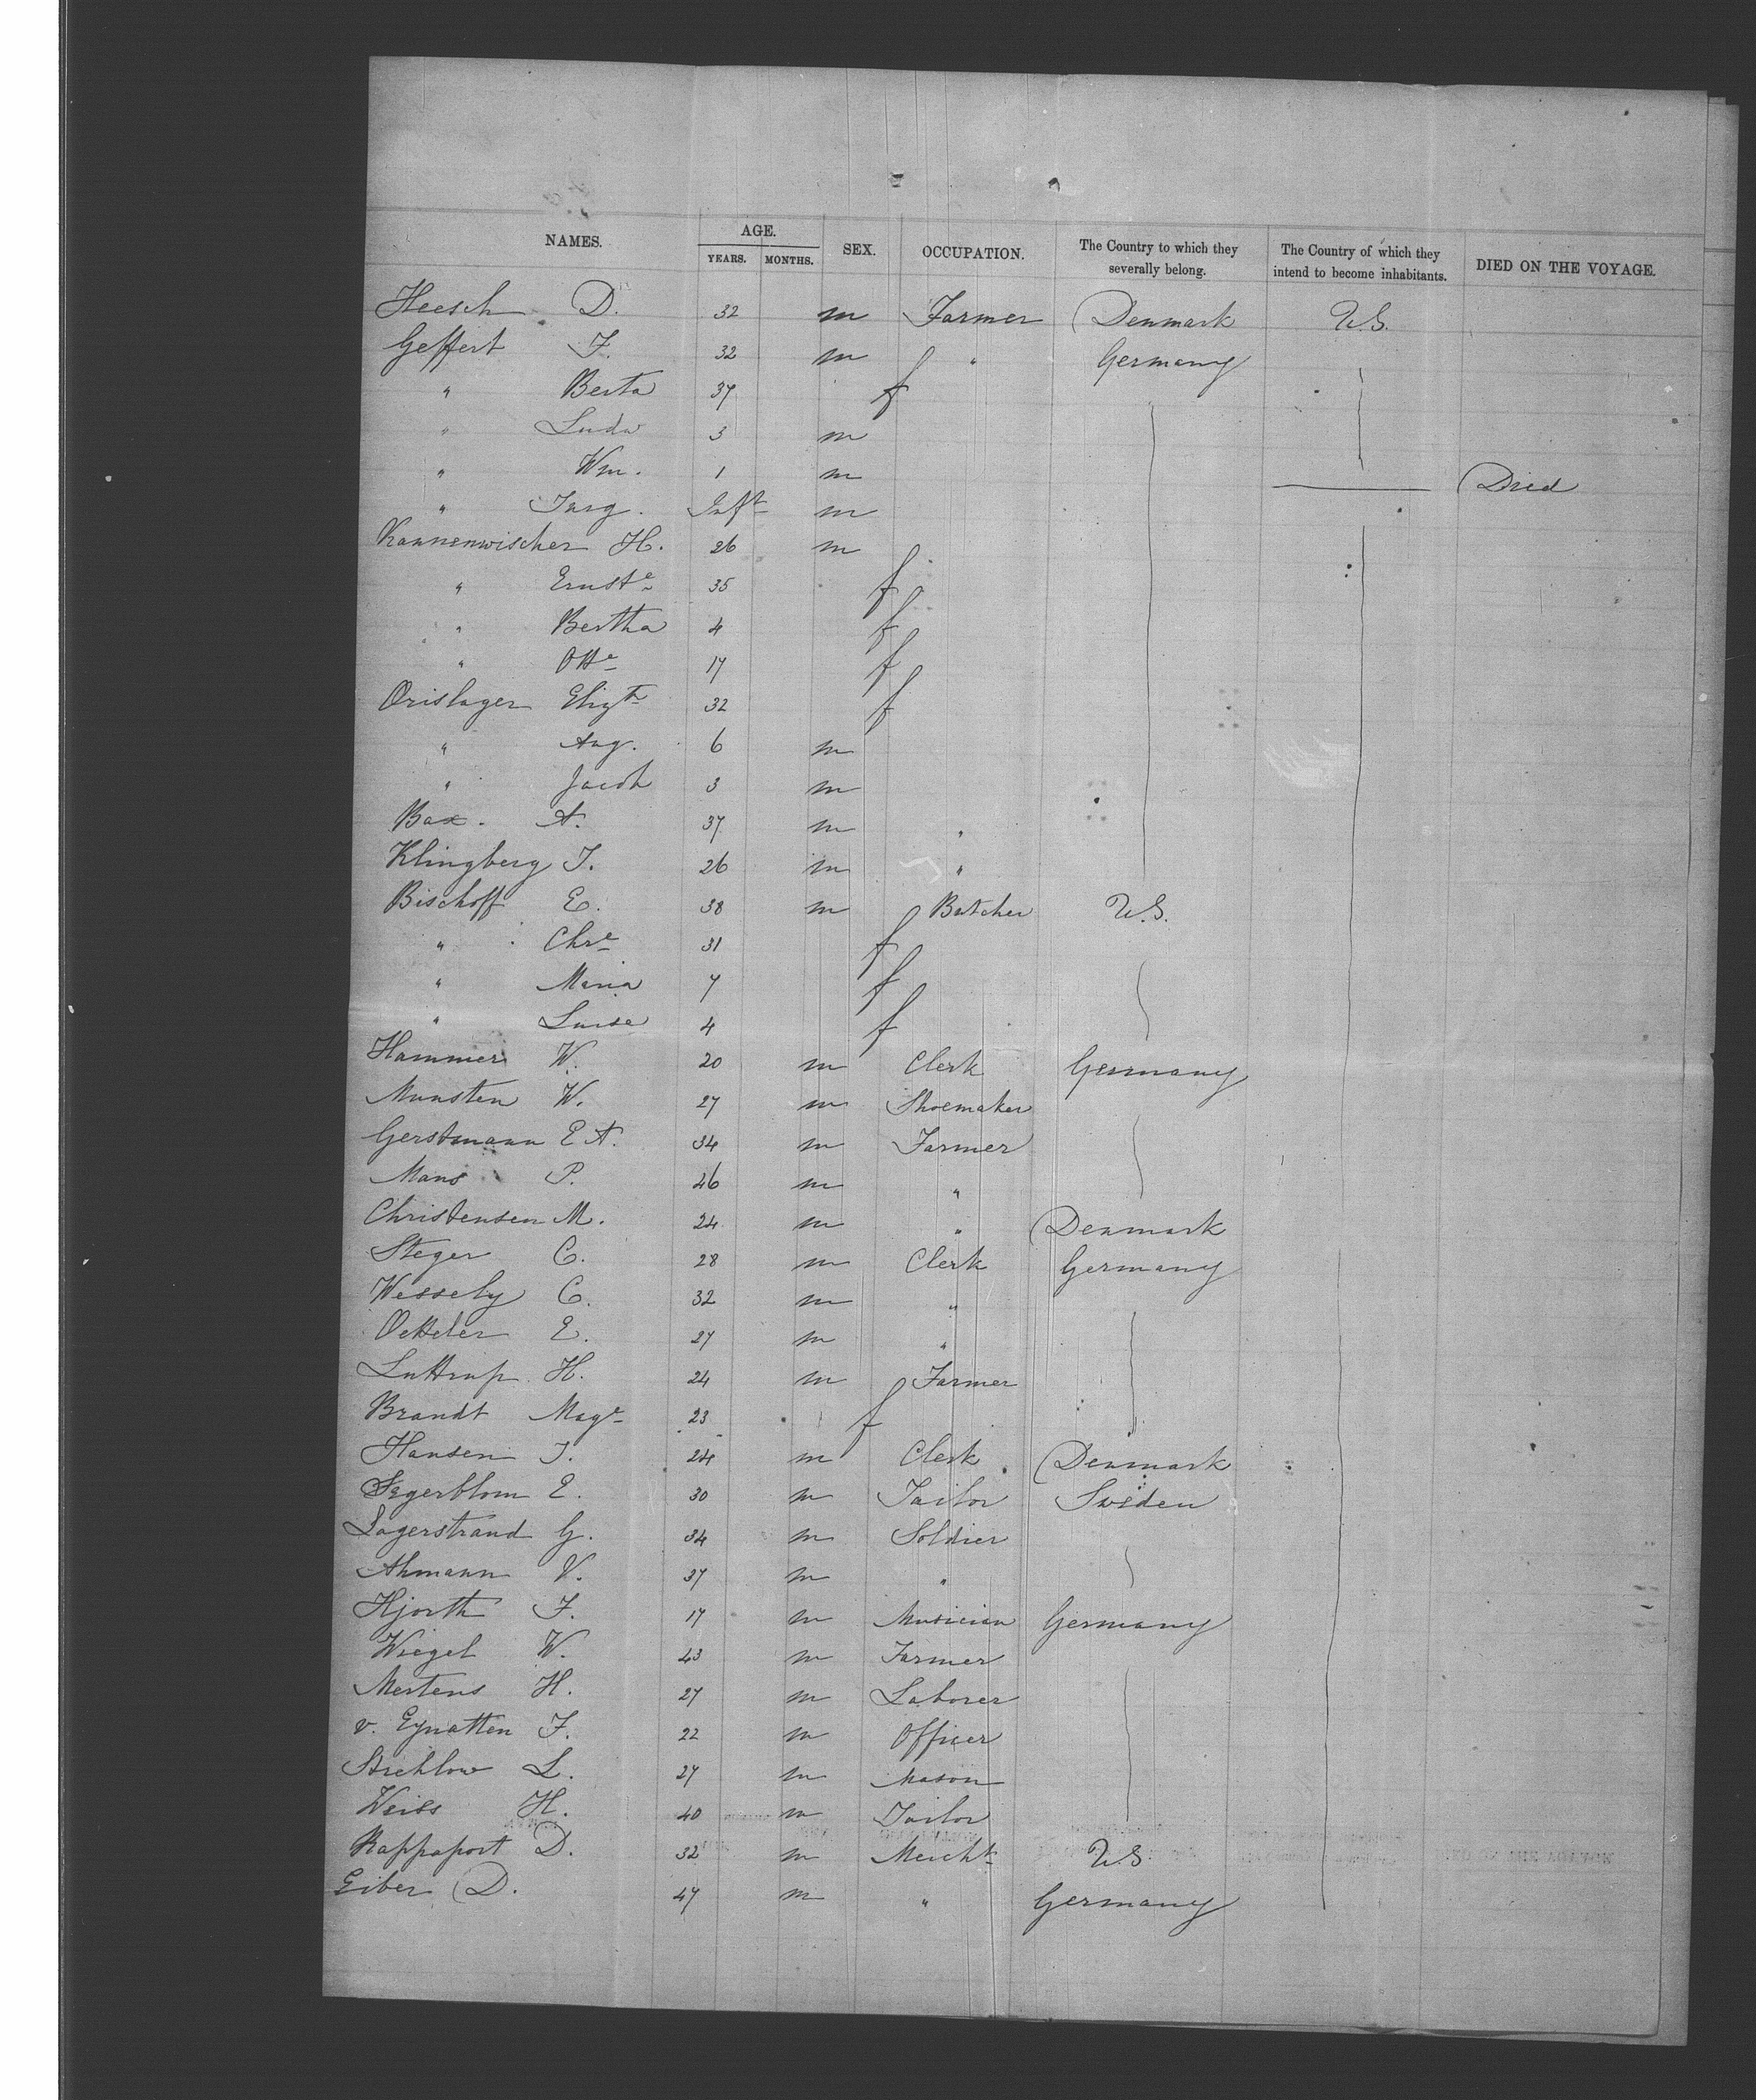 NAMES. AGE. YEARS. MONTHS. SEX. OCCUPATION. The Country to which they severally belong. The Country of which they intend to become inhabitants. DIED ON THE VOYAGE.
Heesch D. 32 m Farmer Denmark U.S.
Geffert F. 32 m " Germany
" Berta 37 f
" Ludw 3 m
" Wm. 1 m Died
" Inft m
Kannenwischer H. 26 m
" Ernste 35 f
" Bertha 4 f
" Otte 17 f
Orislager Elizth 32 f
" Aug. 6 m
" Jacob 3 m
Bax. A. 37 m "
Klingberg J. 26 m "
Bischoff E. 38 m Butcher U.S.
" Chre 31 f
" Maria 7 f
" Luise 4 f
Hammer W. 20 m Clerk Germany
Munsten W. 27 m Shoemaker
Gerstmann E A. 34 m Farmer
Mans P. 46 m "
Christensen M. 24 m " Denmark
Steger C. 28 m Clerk Germany
Wessely C. 32 m "
Oetteler E. 27 m "
Luttrup H. 24 m Farmer
Brandt Mage 23 f
Hansen J. 24 m Clerk Denmark
Segerblom E. 30 m Tailor Sweden
Lagerstrand G. 34 m Soldier
Ahmann V. 37 m "
Hjorth F. 17 m Musician Germany
Wiegel W. 43 m Farmer
Mertens H. 27 m Laborer
v. Eynatten F. 22 m Officer
Strehlow L. 27 m Mason
Weiss H. 40 m Tailor
Rappaport D. 32 m Mercht U.S.
Eiber D. 47 m " Germany